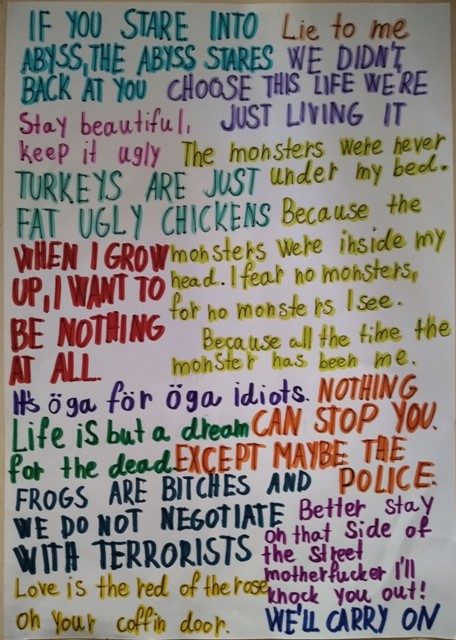 IF YOU STARE INTO
ABYSS, THE ABYSS STARES
BACK AT YOU
Lie to me
WE DIDN'T
CHOOSE THIS LIFE WE'RE
JUST LIVING IT
Stay beautiful,
keep it ugly
The monsters were never
under my bed.
Because the
monsters were inside my
head. I fear no monsters,
for no monsters I see.
Because all the time the
monster has been me.
TURKEYS ARE JUST
FAT UGLY CHICKENS
WHEN I GROW
UP, I WANT TO
BE NOTHING
AT ALL
It's öga för öga idiots.
NOTHING
CAN STOP YOU.
EXCEPT MAYBE THE
POLICE.
Life is but a dream
for the dead
FROGS ARE BITCHES AND
WE DO NOT NEGOTIATE
WITH TERRORISTS
Better stay
on that side of
the street
motherfucker I'll
knock you out!
Love is the red of the rose
on your coffin door.
WE'LL CARRY ON